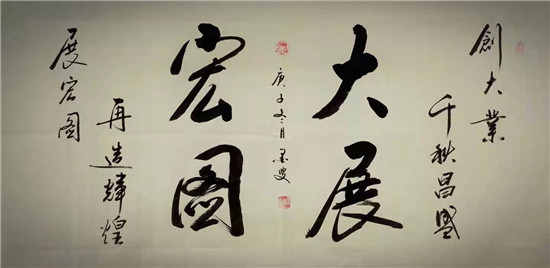 創大業
千秋昌盛
大展
庚子冬月墨叟
宏图
再造輝煌
展宏图